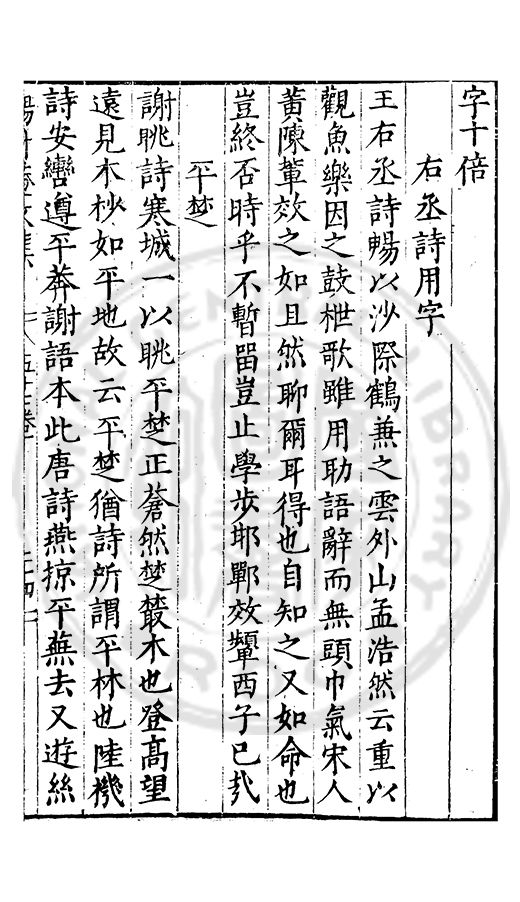 字十倍
右丞詩用字
王右丞詩暢以沙際鶴兼之雲外山孟浩然云重以
觀魚樂因之鼓枻歌雖用助語辭而無頭巾氣宋人
黃陳輩效之如且然聊爾耳得也自知之又如命也
豈終否時乎不暫留豈止學步邯鄲效顰西子已㢤
平楚
謝眺詩寒城一以眺平楚正蒼然楚叢木也登高望
遠見木杪如平地故云平楚猶詩所謂平林也陸機
詩安轡遵平莽謝語本此唐詩燕掠平蕪去又遊絲